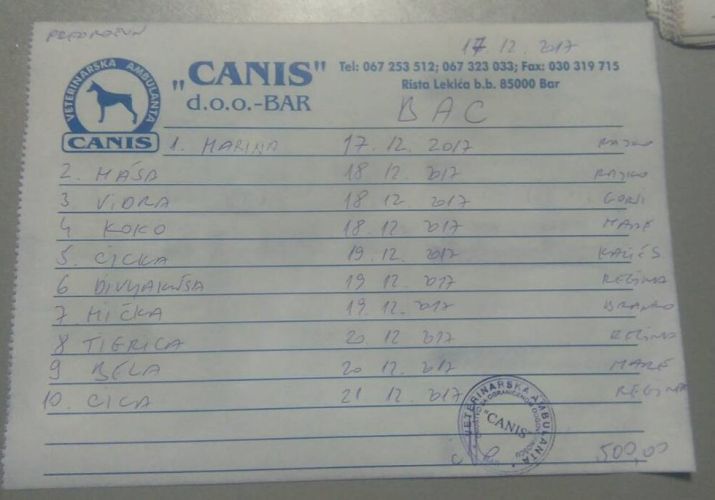 PREDRAČUN
17 12. 2017
VETERINARSKA AMBULANTA
CANIS
"CANIS"
d.o.o.-BAR
Tel: 067 253 512; 067 323 033; Fax: 030 319 715
Rista Lekića b.b. 85000 Bar
BAC
1. MARINA 17. 12. 2017 RAJKO
2. MAŠA 18 12. 2017 RAJKO
3 VIDRA 18 12. 2017
4 KOKO 18 12. 2017 MARE
5. CICKA 19 12. 2017
6 DIVLJAKUŠA 19 12. 2017 REGINA
7 MIČKA 19 12. 2017 BRANKO
8 TIGRICA 20 12 2017 REGINA
9 BELA 20 12. 2017 MARE
10. CICA 21 12. 2017 REGINA
VETERINARSKA AMBULANTA
"CANIS"
500,00